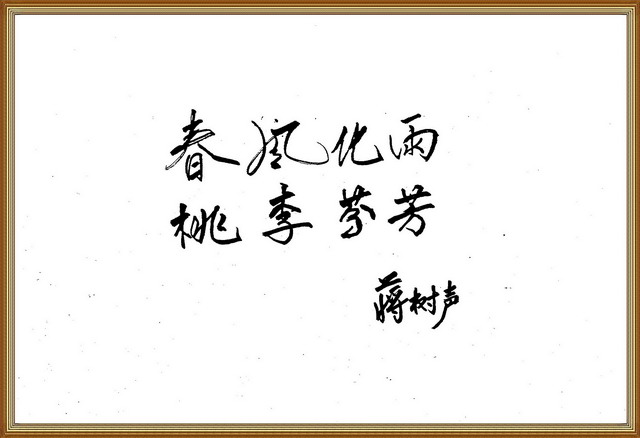 春風化雨
桃李芬芳
蒋树声